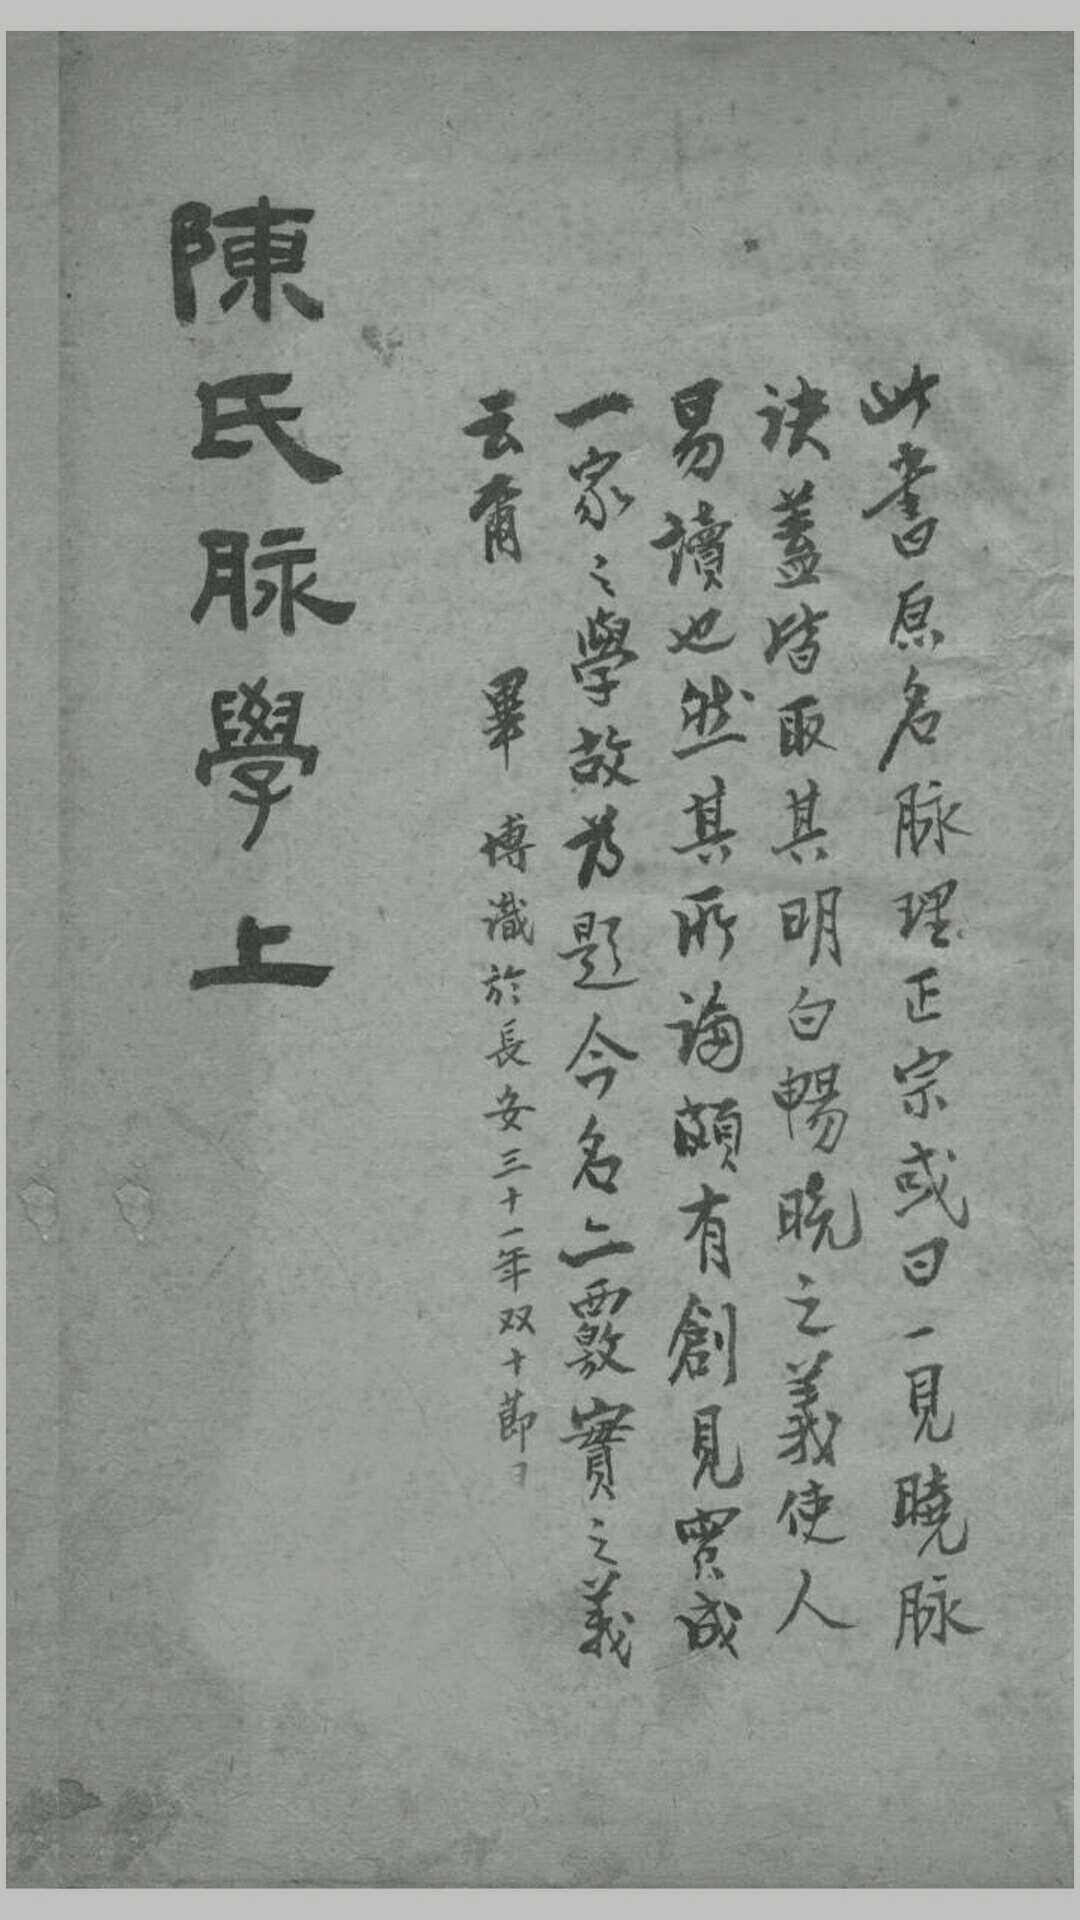 此書原名脉理正宗或曰一見曉脉
訣蓋皆取其明白暢曉之義使人
易讀也然其所論頗有創見實成
一家之學故為題今名亦覈實之義
云爾 畢博識於長安三十一年双十節日
陳氏脉學上